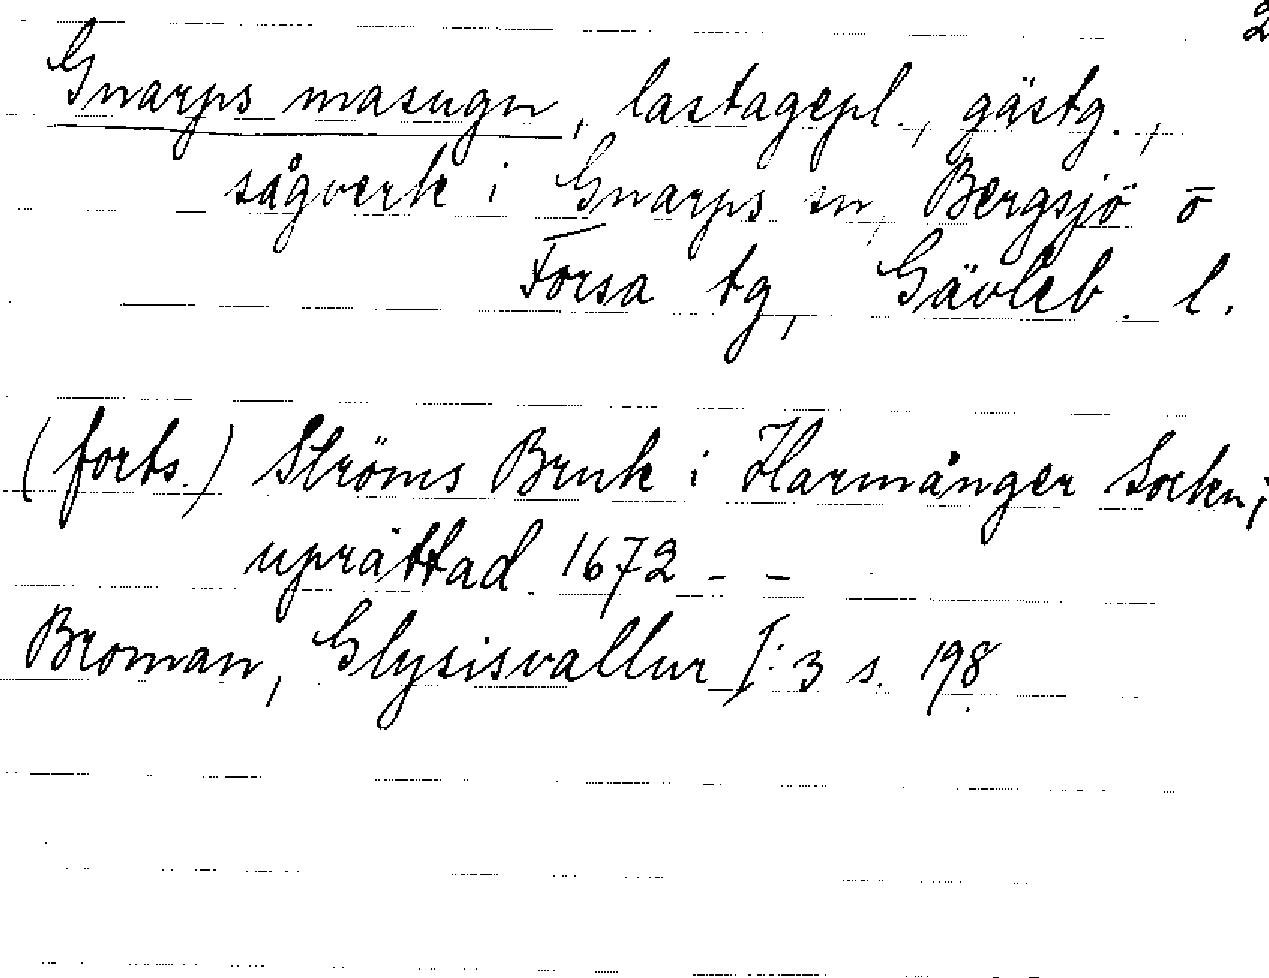 2
Gnarps masugn, lastagepl., gästg.,
sågverk i Gnarps sn, Bergsjö o
Forsa tg, Gävleb. l.
(forts.) Ströms Bruk i Harmånger Sockn;
uprättad 1672 - -
Broman, Glysisvallur I:3 s. 198